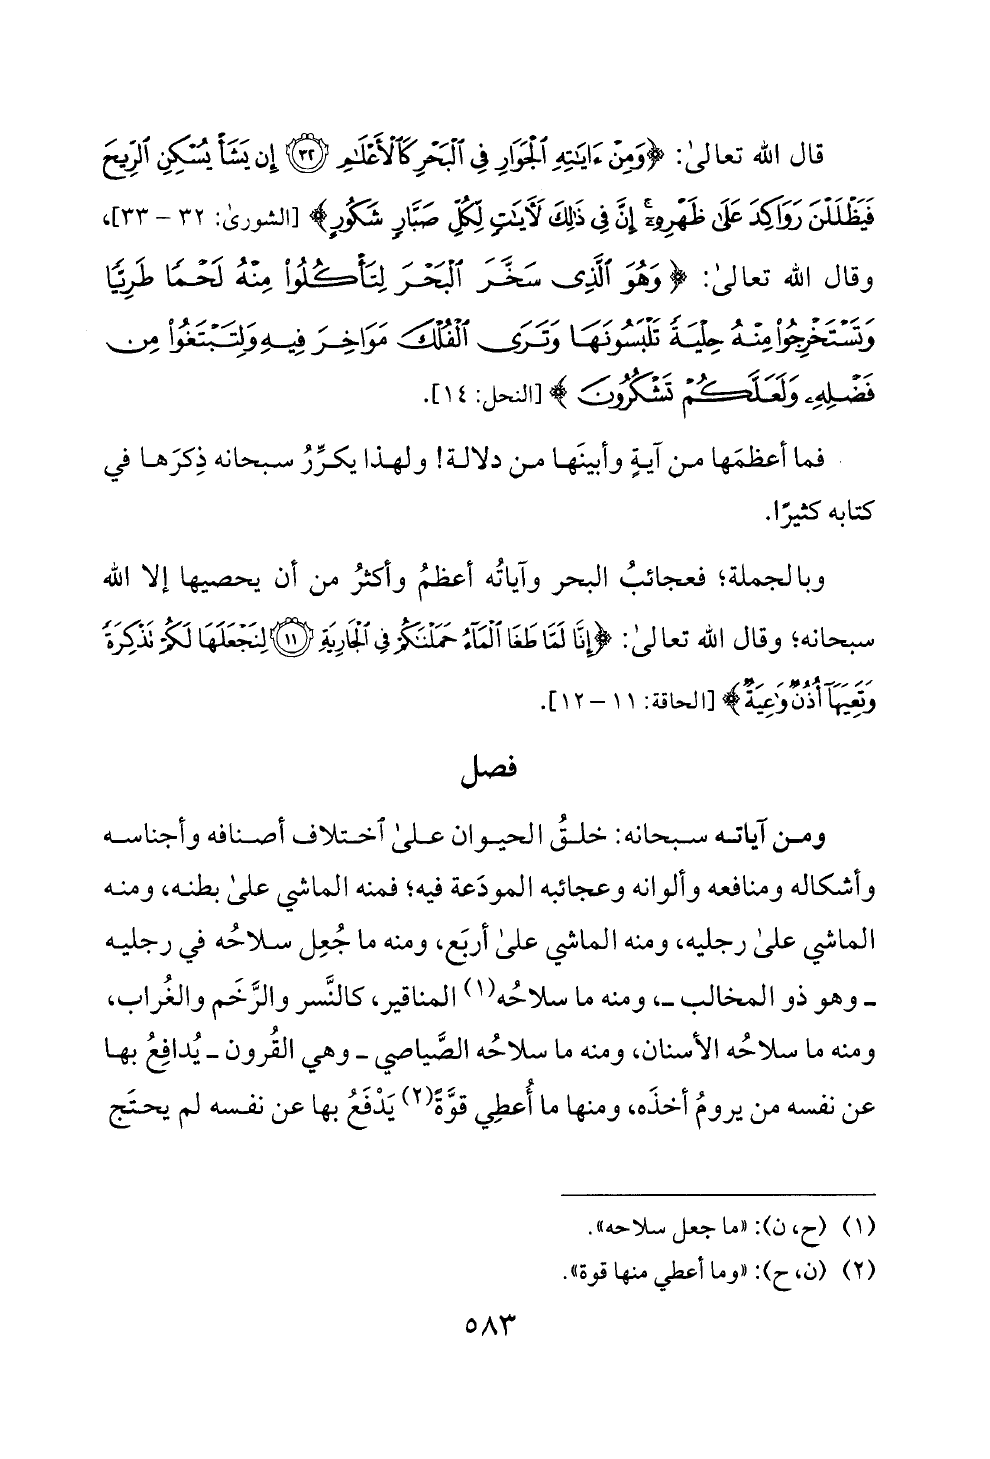 قال الله تعالىٰ: ﴿وَمِنْ ءَايَٰتِهِ ٱلْجَوَارِ فِى ٱلْبَحْرِ كَٱلْأَعْلَٰمِ ٣٢ إِن يَشَأْ يُسْكِنِ ٱلرِّيحَ
فَيَظْلَلْنَ رَوَاكِدَ عَلَىٰ ظَهْرِهِۦٓ إِنَّ فِى ذَٰلِكَ لَءَايَٰتٍ لِّكُلِّ صَبَّارٍ شَكُورٍ﴾ [الشورىٰ: ٣٢ – ٣٣]،
وقال الله تعالىٰ: ﴿وَهُوَ ٱلَّذِى سَخَّرَ ٱلْبَحْرَ لِتَأْكُلُوا۟ مِنْهُ لَحْمًا طَرِيًّا
وَتَسْتَخْرِجُوا۟ مِنْهُ حِلْيَةً تَلْبَسُونَهَا وَتَرَى ٱلْفُلْكَ مَوَاخِرَ فِيهِ وَلِتَبْتَغُوا۟ مِن
فَضْلِهِۦ وَلَعَلَّكُمْ تَشْكُرُونَ﴾ [النحل: ١٤].
فما أعظمَها من آيةٍ وأبينَها من دلالة! ولهذا يكرِّرُ سبحانه ذِكرَها في
كتابه كثيرًا.
وبالجملة؛ فعجائبُ البحر وآياتُه أعظمُ وأكثرُ من أن يحصيها إلا الله
سبحانه؛ وقال الله تعالىٰ: ﴿إِنَّا لَمَّا طَغَا ٱلْمَآءُ حَمَلْنَٰكُمْ فِى ٱلْجَارِيَةِ ١١ لِنَجْعَلَهَا لَكُمْ تَذْكِرَةً
وَتَعِيَهَآ أُذُنٌ وَٰعِيَةٌ﴾ [الحاقة: ١١ – ١٢].
فصل
ومن آياته سبحانه: خلقُ الحيوان علىٰ ٱختلاف أصنافه وأجناسه
وأشكاله ومنافعه وألوانه وعجائبه المودَعة فيه؛ فمنه الماشي علىٰ بطنه، ومنه
الماشي علىٰ رجليه، ومنه الماشي علىٰ أربَع، ومنه ما جُعِل سلاحُه في رجليه
ـ وهو ذو المخالب ـ، ومنه ما سلاحُه(١) المناقير، كالنَّسر والرَّخَم والغُراب،
ومنه ما سلاحُه الأسنان، ومنه ما سلاحُه الصَّياصي ـ وهي القُرون ـ يُدافِعُ بها
عن نفسه من يرومُ أخذَه، ومنها ما أُعطِي قوَّةً(٢) يَدْفَعُ بها عن نفسه لم يحتَج
(١) (ح، ن): «ما جعل سلاحه».
(٢) (ن، ح): «وما أعطي منها قوة».
٥٨٣